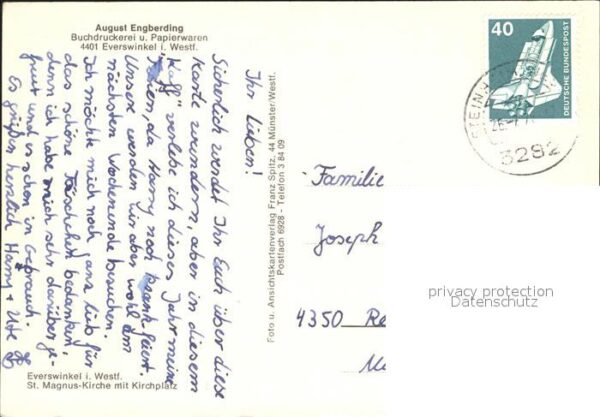 August Engberding
Buchdruckerei u. Papierwaren
4401 Everswinkel i. Westf.
Ihr Lieben!
Sicherlich werdet Ihr Euch über diese
Karte wundern, aber in diesem
"Kuff" verlebe ich dieses Jahr meine
da Harry noch krank feiert.
Unser werden wir aber wohl am
nächsten Wochenende besuchen.
Ich möchte mich noch ganz lieb für
das schöne Täschchen bedanken,
denn ich habe mich sehr darüber ge-
freut und es schon in Gebrauch.
Es grüßen herzlich Harry + Ute
Everswinkel i. Westf.
St. Magnus-Kirche mit Kirchplatz
Foto u. Ansichtskartenverlag Franz Spitz, 44 Münster/Westf.
Postfach 6928 - Telefon 3 84 09
40
DEUTSCHE BUNDESPOST
3282
Familie
Joseph
4350 Re
privacy protection
Datenschutz